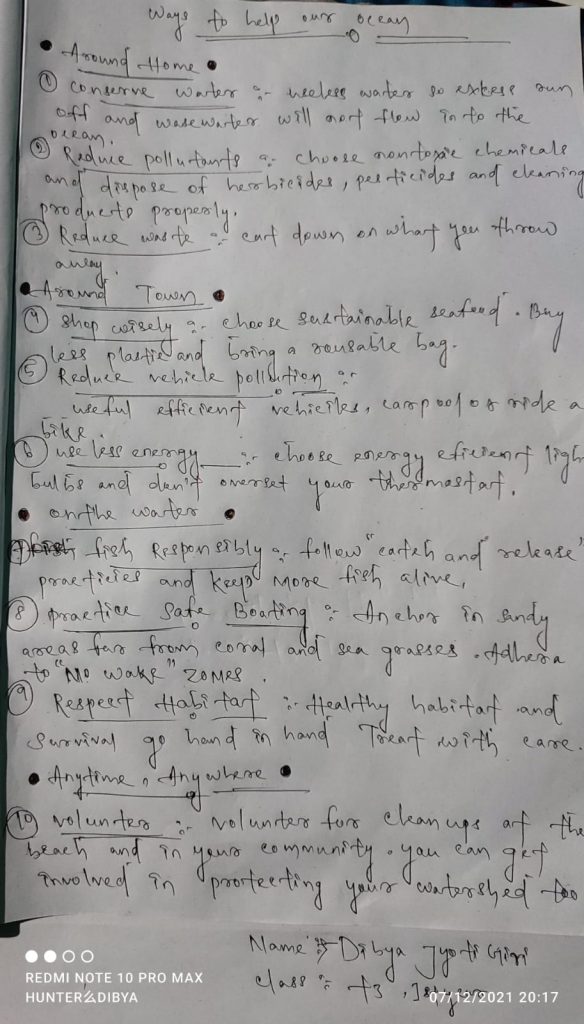 Ways to help our ocean
• Around Home •
① Conserve water :- useless water so exkess run
off and wasewater will not flow in to the
ocean.
② Reduce pollutants :- choose nontoxic chemicals
and dispose of herbicides, pesticides and cleaning
products properly.
③ Reduce waste :- cut down on what you throw
away.
• Around Town •
④ shop wisely :- choose sustainable seafood. Buy
less plastic and bring a reusable bag.
⑤ Reduce vehicle pollution :-
useful efficient vehiciles, carpool or ride a
bike.
⑥ use less energy :- choose energy eficient ligh
bulbs and don't overset your thermostat.
• on the water •
⑦ fish Responsibly :- follow "catch and release"
practicies and keep more fish alive,
⑧ practice Safe Boating :- Anchor in sandy
areas far from coral and sea grasses. Adhera
to "No wake" zones.
⑨ Respect Habitat :- Healthy habitat and
survival go hand in hand Treat with care.
• Anytime, Anywhere •
⑩ volunter :- volunter for cleanups at the
beach and in your community. you can get
involved in protecting your watershed too
Name :- Dibya Jyoti Giri
class :- +3
REDMI NOTE 10 PRO MAX
HUNTER DIBYA
07/12/2021 20:17